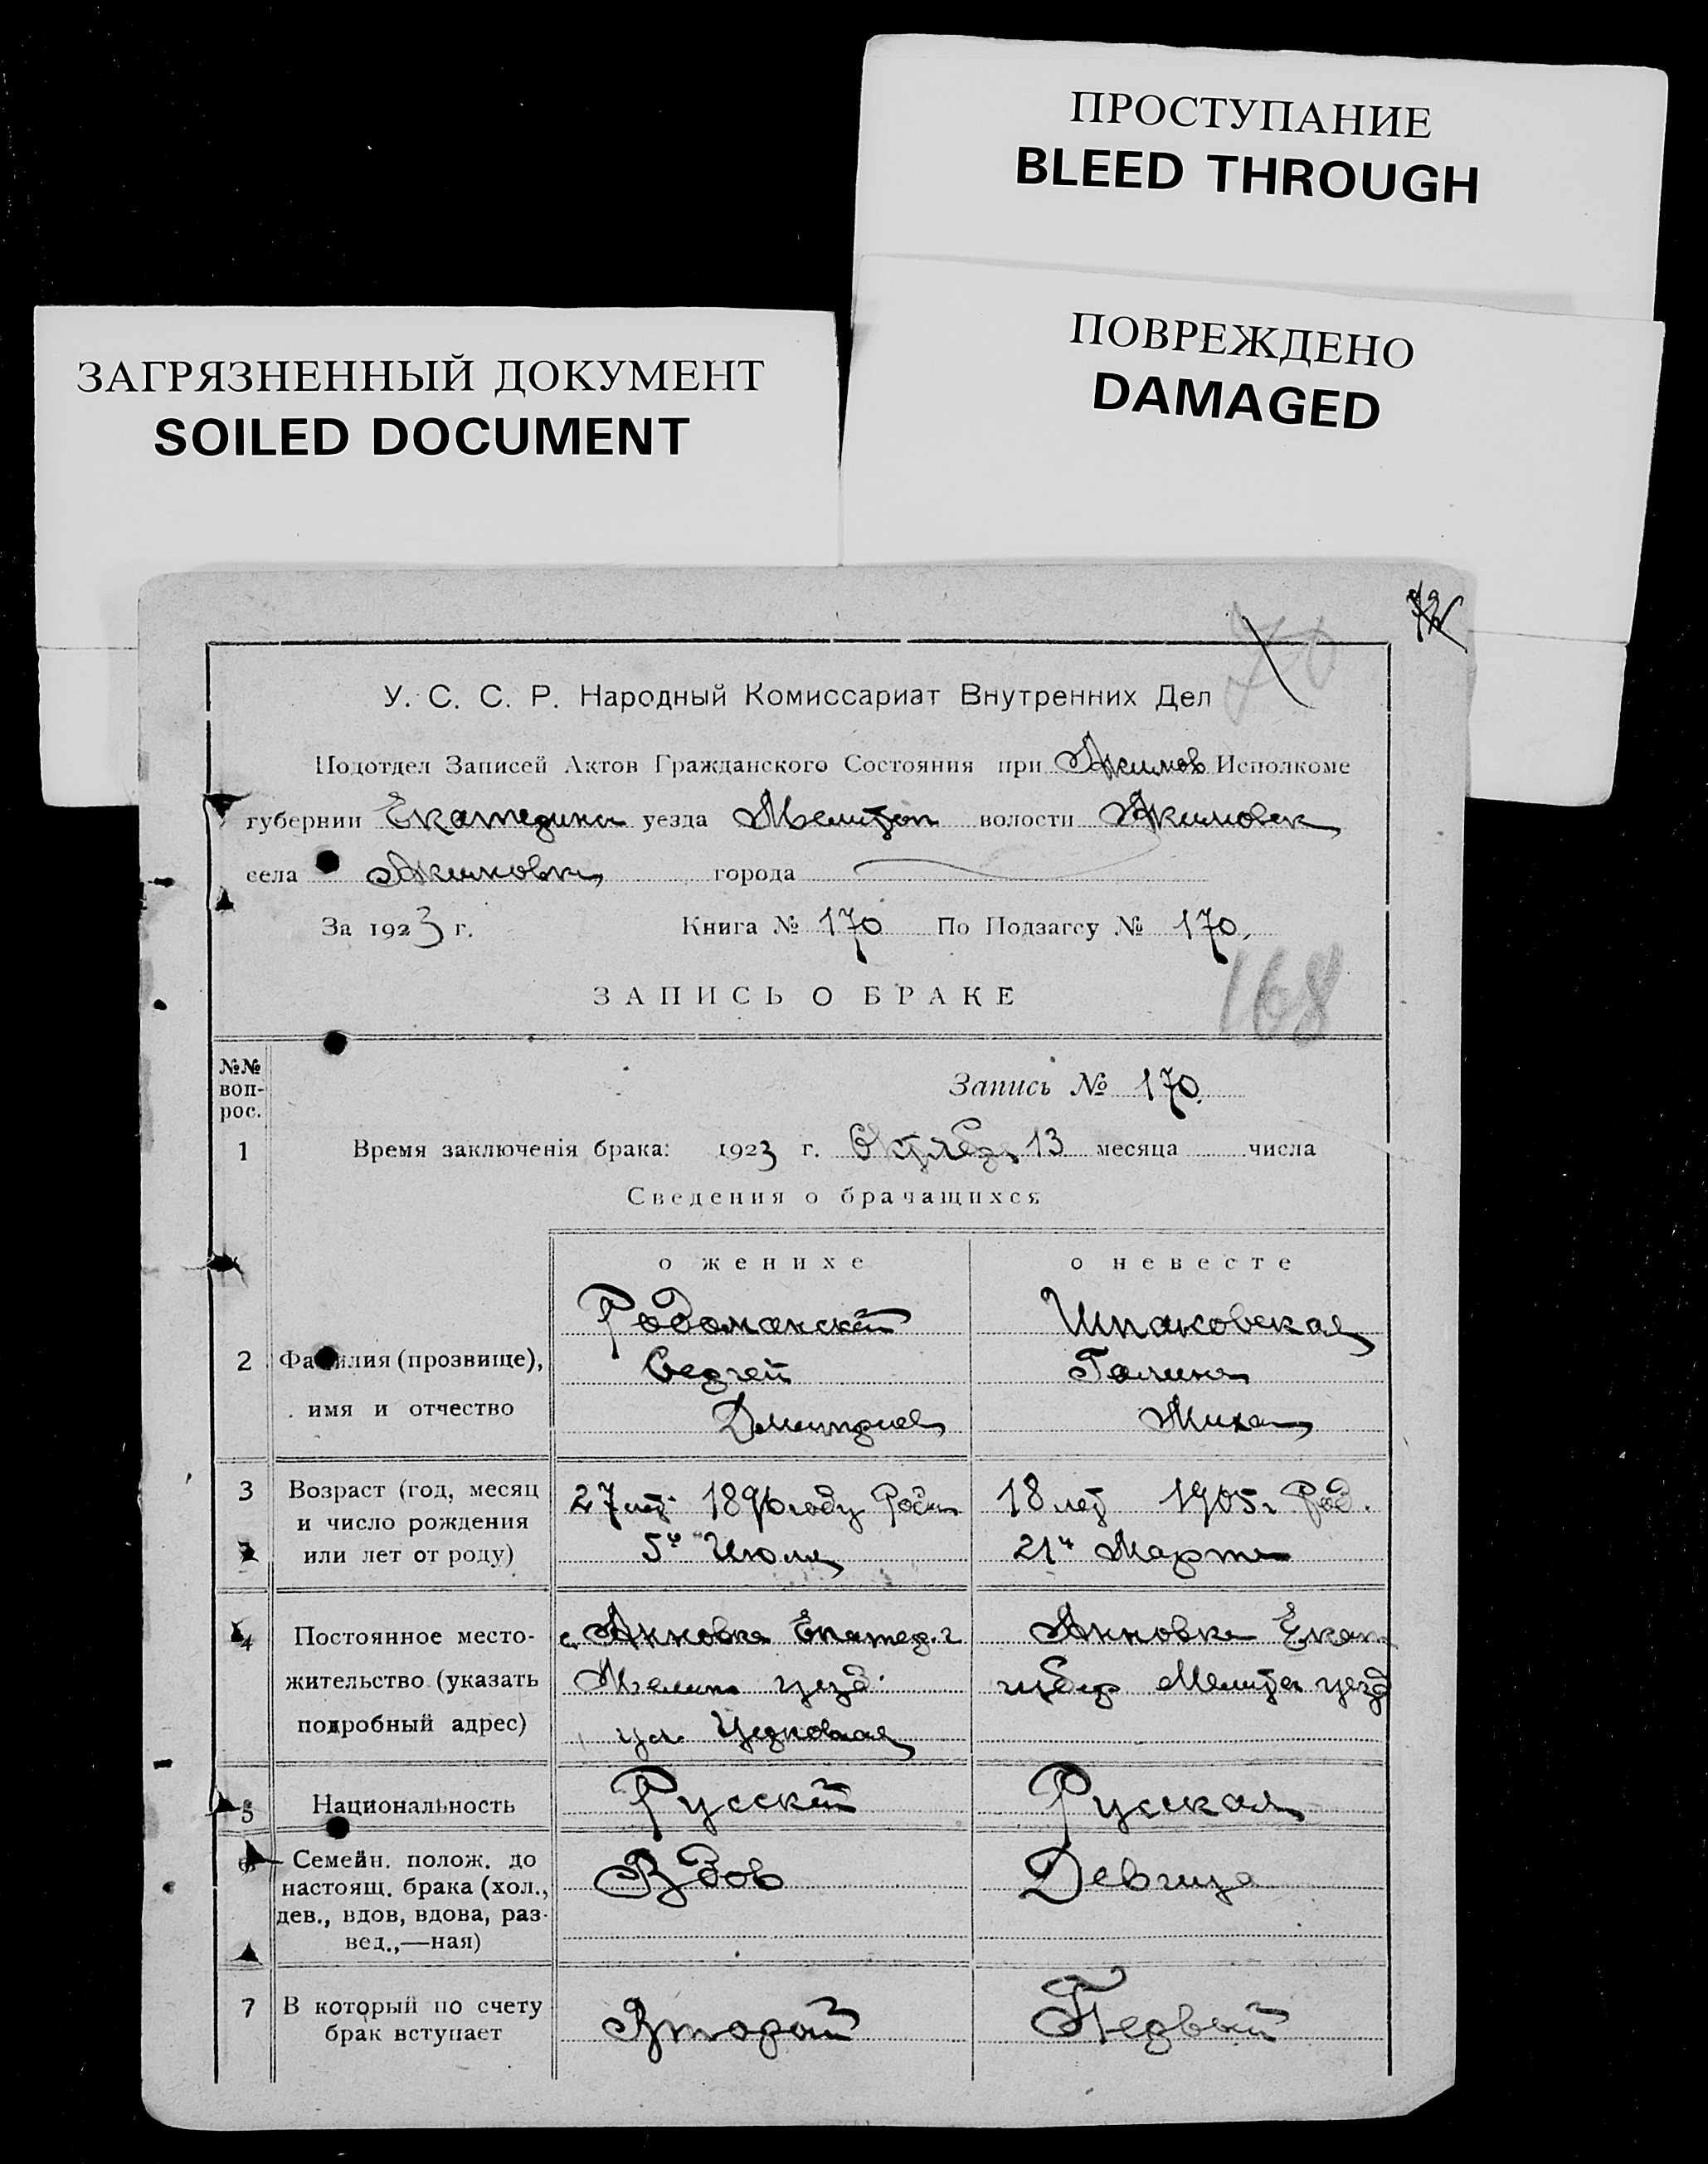 ПРОСТУПАНИЕ
BLEED THROUGH
ПОВРЕЖДЕНО
DAMAGED
ЗАГРЯЗНЕННЫЙ ДОКУМЕНТ
SOILED DOCUMENT
У. С. С. Р. Народный Комиссариат Внутренних Дел
Подотдел Записей Актов Гражданского Состояния при Акимов Исполкоме
губернии Екатерин уезда Мелитоп волости Акимовск
села Акимовка города
За 1923 г. Книга № 170 По Подзагсу № 170.
168
ЗАПИСЬ О БРАКЕ
№№ воп-рос.
Запись № 170.
1 Время заключенія брака: 1923 г. Октября 13 месяца числа
Сведения о брачащихся
о женихе о невесте
Родоманский Шпаковская
2 Фамилия (прозвище), Сергей Галина
имя и отчество Дмитриев Миха
3 Возраст (год, месяц 27 лет 1896 году Роди 18 лет 1905 г. Род.
и число рождения
или лет от роду) 5го Июля 21го Марта
4 Постоянное место- с. Анновка Екатер. г. Анновка Екат
жительство (указать Мелит уезд. губер Мелитоп уезд
подробный адрес) ул.
5 Национальность Русский Русская
6 Семейн. полож. до Вдов Девица
настоящ. брака (хол.,
дев., вдов, вдова, раз-
вед.,—ная)
7 В который по счету Второй Первый
брак вступает